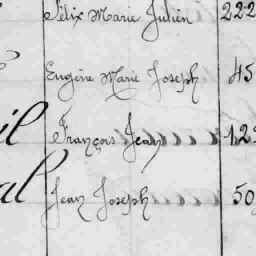 Félix Marie Julien 222
Eugène Marie Joseph 45
il François Jean 12
al Jean Joseph 50